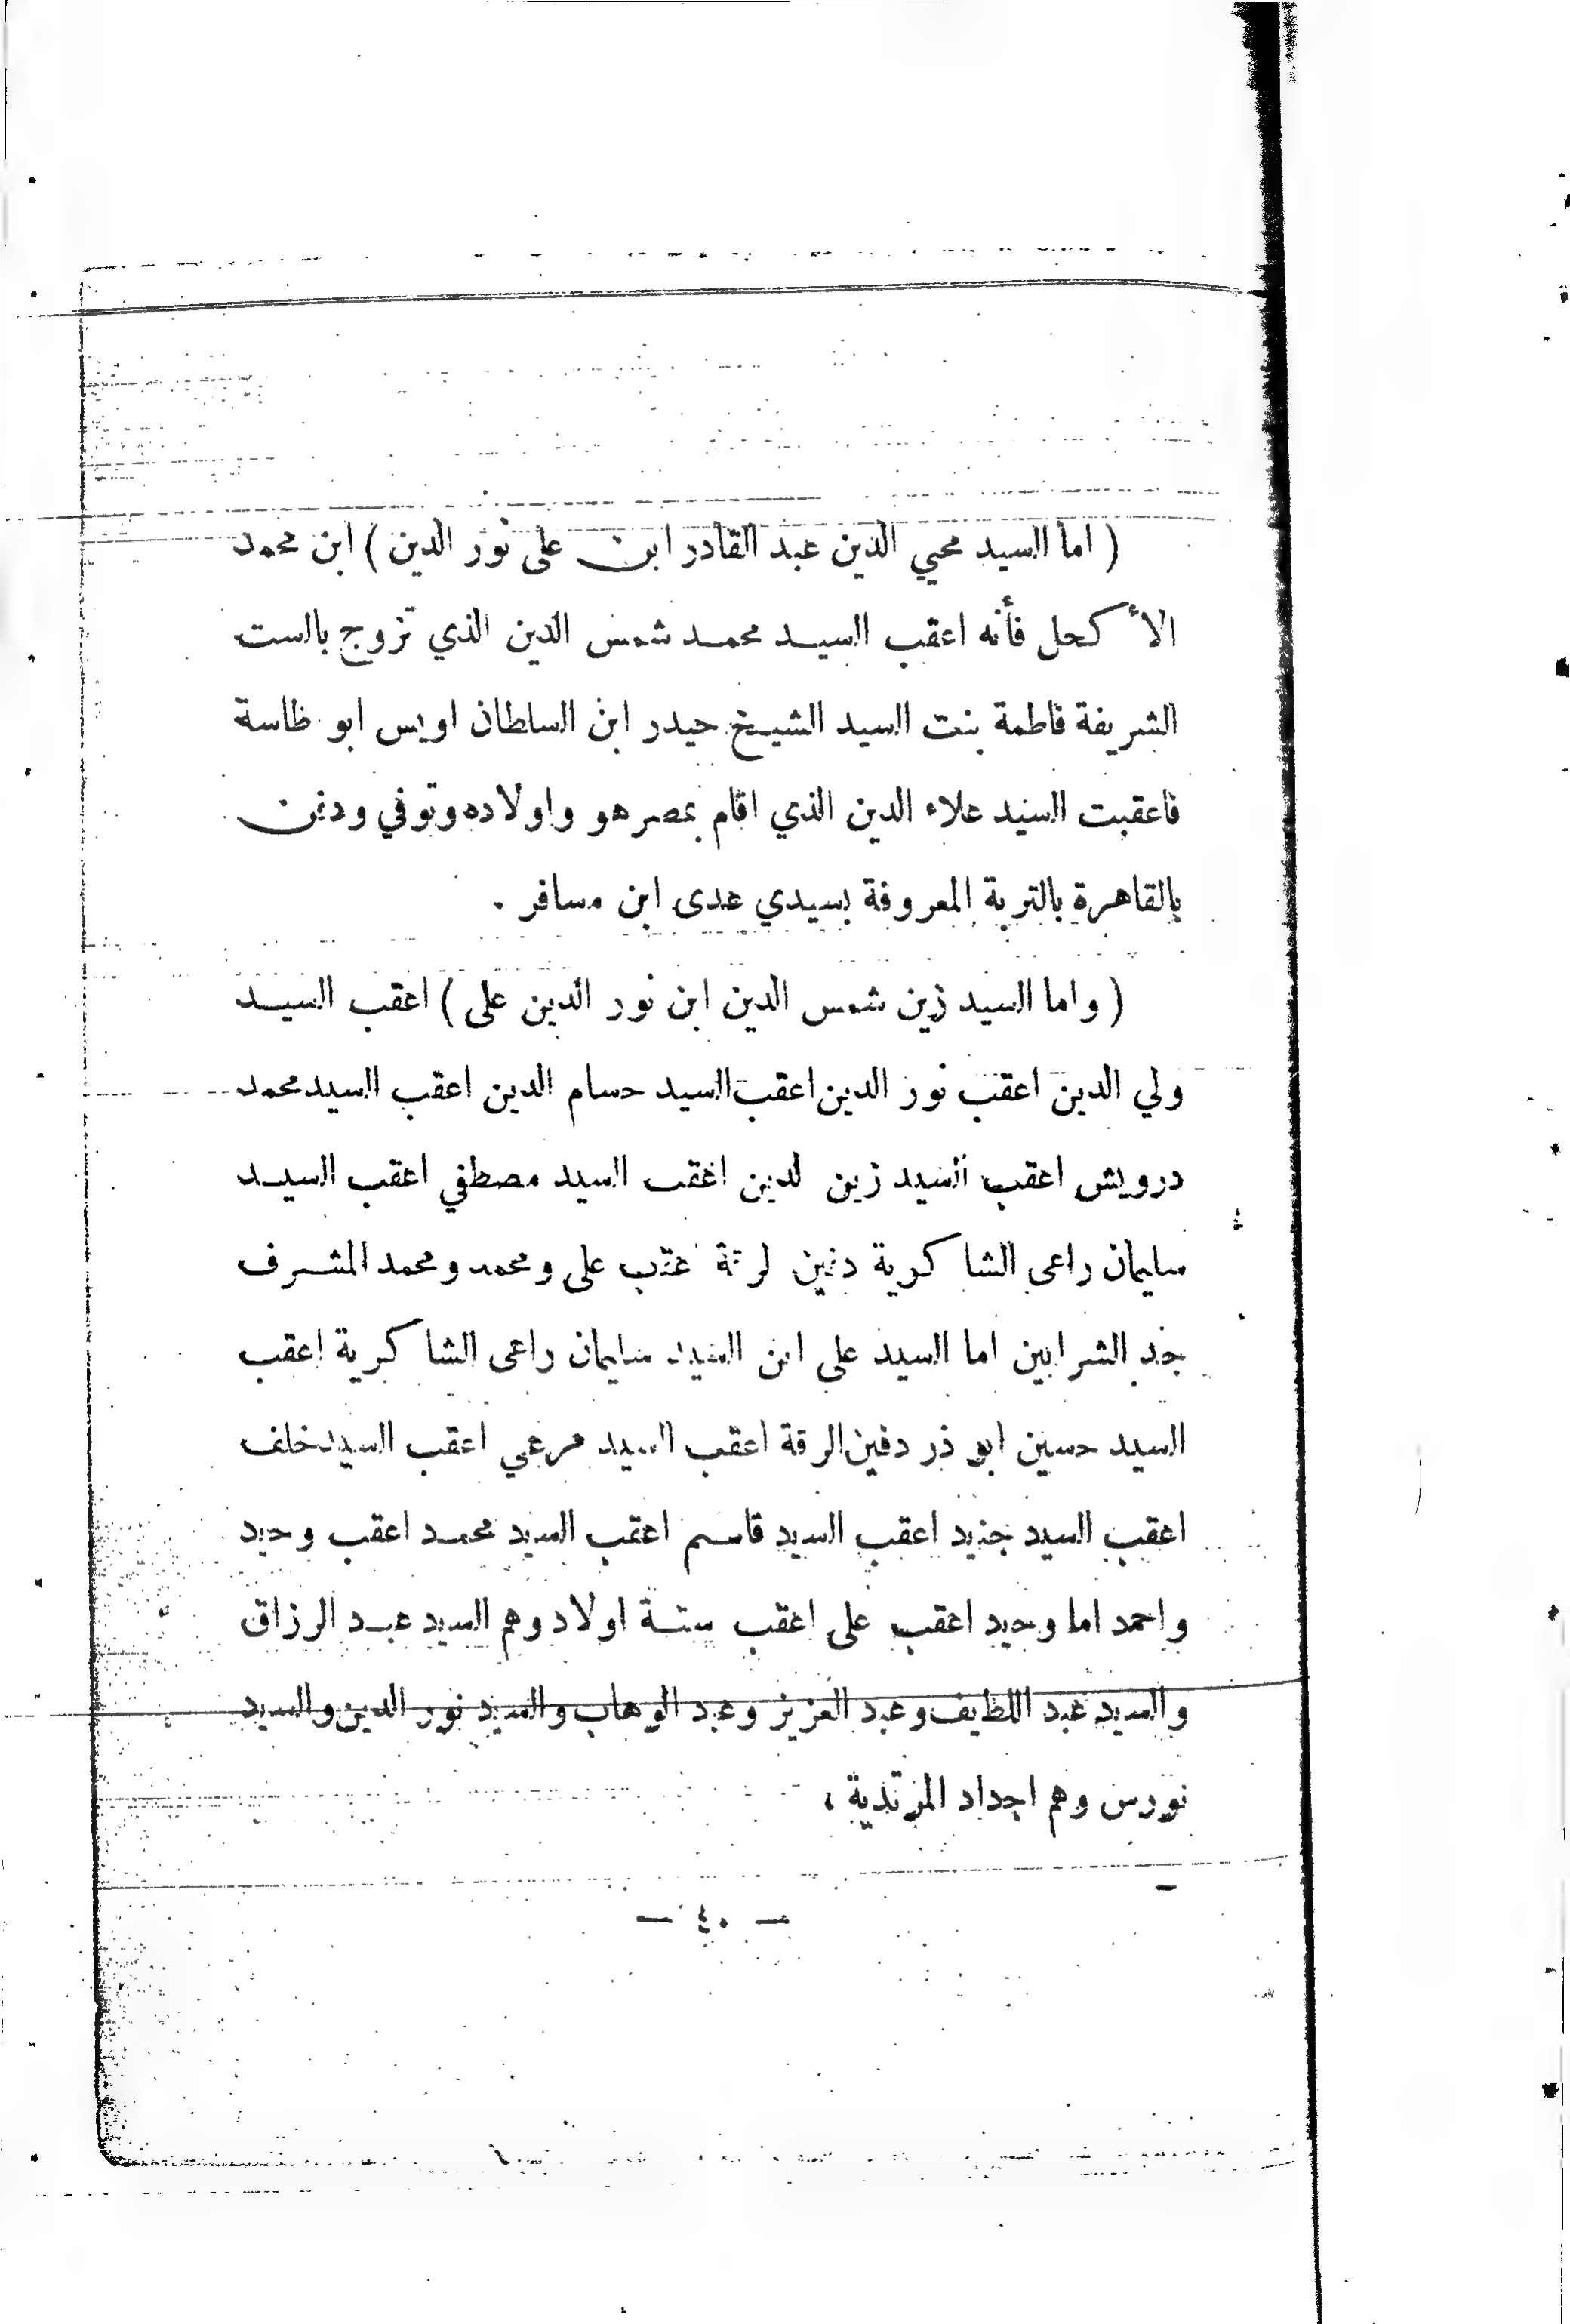 ( اما السيد محيي الدين عبد القادر ابن على نور الدين ) ابن محمد
الأكحل فأنه اعقب السيد محمد شمس الدين الذي تزوج بالست
الشريفة فاطمة بنت السيد الشيخ حيدر ابن السلطان اويس ابو طاسة
فاعقبت السيد علاء الدين الذي اقام بمصر هو واولاده وتوفي ودفن
بالقاهرة بالتربة المعروفة بسيدي عدى ابن مسافر .
( واما السيد زين شمس الدين ابن نور الدين على ) اعقب السيد
ولي الدين اعقب نور الدين اعقب السيد حسام الدين اعقب السيد محمد
درويش اعقب السيد زين لدين اعقب السيد مصطفي اعقب السيد
سليمان راعى الشاكرية دفين على ومحمد ومحمد المشرف
جد الشرابين اما السيد على ابن السيد سليمان راعى الشاكرية اعقب
السيد حسين ابو ذر دفين الرقة اعقب السيد مرعي اعقب السيد خلف
اعقب السيد جنيد اعقب السيد قاسم اعقب السيد محمد اعقب وحيد
واحمد اما وحيد اعقب على اعقب ستة اولاد وهم السيد عبد الرزاق
والسيد عبد اللطيف وعبد العزيز وعبد الوهاب والسيد نور الدين والسيد
نورس وهم اجداد
— ٤٠ —